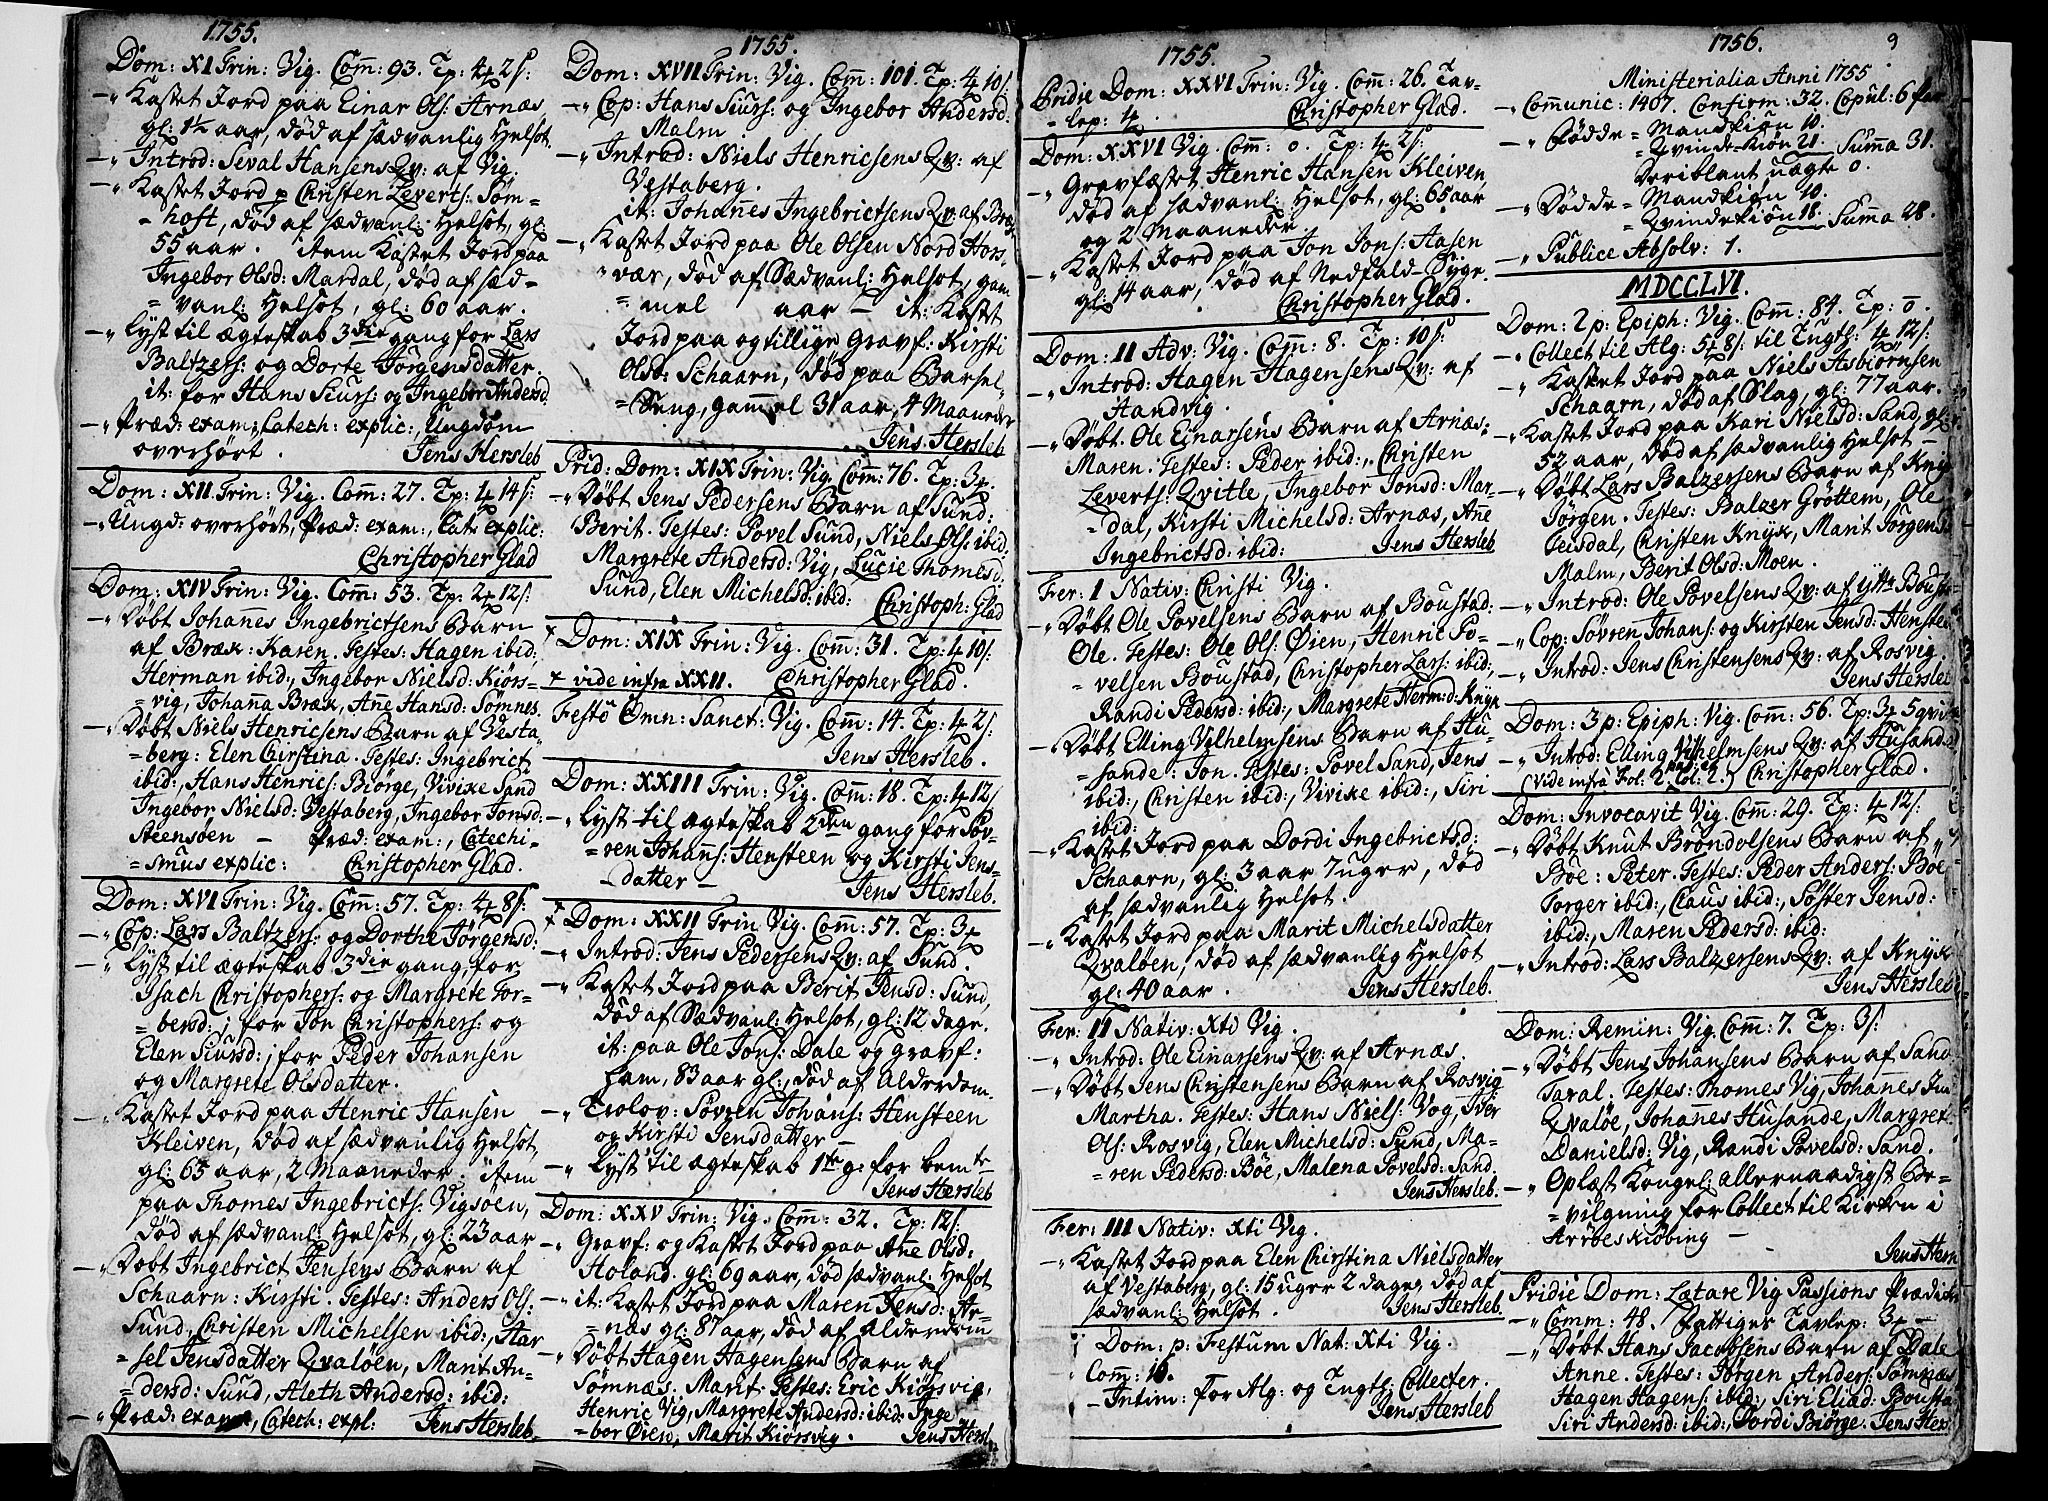 1755.
Dom: XI Trin: Vig. Com̄: 93. Tp: 4 ꝝ 2 ſ:
–„ Kastet Jord paa Einar Ols: Arnæs
gl: 1½ aar, död af sædvanlig Helsot.
–„ Introd: Seval Hansens Qv: af Vig.
–„ Kastet Jord p Christen Leverts: Söm-
=hoft, död af sædvanl: Helsot, gl
55 aar. item Kastet Jord paa
Ingebor Olsd: Mardal, död af sæd-
=vanl: Helsot, gl: 60 aar.
–„ Lyst til ægteskab 3die gang for Lars
Baltzers: og Dorte Jörgensdatter.
it: for Hans Siurs: og Ingebor Andersd.
–„ Præd: exam:, Catech: explic:, Ungdom
overhört. Jens Hersleb
Dom: XII Trin: Vig. Com̄: 27. Tp: 1 ꝝ 14 ſ:
–„ Ungd: overhört, Præd: exam:, Cate explic:
Christopher Glad
Dom: XIV Trin: Vig. Com̄: 53. Tp: 2 ꝝ 12 ſ:
–„ Döbt Johannes Ingebrictsens Barn
af Bræk: Karen. Testes: Hagen ibid:,
Herman ibid:, Ingebor Nielsd: Kiörs-
=vig, Johanna Bræk, Ane Hansd: Sömnes.
–„ Döbt Niels Henricsens Barn af Vesta
=berg: Elen Chirstina. Testes: Ingebrict
ibid:, Hans Henrics: Biörge, Vivike Sand
Ingebor Nielsd: Vestaberg, Ingebor Jonsd:
Steensöen – Præd: exam:, Catechi-
=smus explic: Christopher Glad.
Dom: XVI Trin: Vig. Com̄: 57. Tp: 4 ꝝ 8 ſ:
–„ Cop: Lars Baltzers: og Dorthe Jörgensd:
–„ Lyst til ægteskab 3die gang, for
Isach Christophers: og Margrete Tor-
=bersd:; for Jon Christophers: og
Elen Siursd:; for Peder Johansen
og Margrete Olsdatter.
–„ Kastet Jord paa Henric Hansen
Kleiven, död af sædvanlig Helsot,
gl: 65 aar, 2 Maaneder item
paa Thomes Ingebricts: Vigsöen,
död af sædvanl: Helsot, gl: 23 aar
–„ Döbt Ingebrict Jensens Barn af
Schaarn: Kirsti. Testes: Anders Ols.
Sund, Christen Michelsen ibid:, Mar
=sel Jensdatter Qvalöen, Marit An-
=dersd: Sund, Aleth Andersd: ibid:
–„ Præd: exam, Catech: expl: Jens Hersleb.
1755.
Dom: XVII Trin: Vig. Com̄: 101. Tp: 4 ꝝ 10 ſ:
–„ Cop: Hans Siurs: og Ingebor Andersd.
Malm
–„ Introd: Niels Henricsens Qv: af
Vestaberg.
it: Johan̄es Ingebrictsens Qv: af Bræk
–„ Kastet Jord paa Ole Olsen Nord Hors-
=vær, död af Sædvanl: Helsot, gam
=mel aar – it: Kastet
Jord paa og tillige Gravf: Kirsti
Olsd: Schaarn, död paa Barsel
=Seng, gam̄el 31 aar, 4 Maaneder
Jens Hersleb
Prid: Dom: XIX Trin: Vig. Com̄: 76. Tp: 3 ꝝ.
–„ Döbt Jens Pedersens Barn af Sund:
Berit. Testes: Povel Sund, Niels Ols: ibid:
Margrete Andersd: Vig, Lucie Thomesd:
Sund, Elen Michelsd: ibid: Christoph: Glad
+ Dom: XIX Trin: Vig. Com̄: 31. Tp: 4 ꝝ 10 ſ:
+ vide infra XXII. Christopher Glad.
Festo Om̄n: Sanct: Vig. Com̄: 14. Tp: 4 ꝝ 2 ſ:
Jens Hersleb.
Dom: XXIII Trin: Vig. Com̄: 18. Tp: 1 ꝝ 12 ſ
–„ Lyst til ægteskab 2den gang for Söv-
=ren Johans: Hensteen og Kirsti Jens-
datter – Jens Hersleb.
+ Dom: XXII Trin Vig. Com̄: 57. Tp: 3 ꝝ
–„ Introd: Jens Pedersens Qv: af Sund.
–„ Kastet Jord paa Berit Jensd: Sund,
död af Sædvanl: Helsot, gl: 12 dage.
it: paa Ole Jons: Dale og Gravf:
ham, 83 aar gl:, död af Alderdom.
–„ Trolov: Sövren Johans: Hensteen
og Kirsti Jensdatter –
–„ Lyst til ægteskab 1te g: for bemte
Jens Hersleb
Dom: XXV Trin: Vig. Com̄: 32. Tp: 12 ſ:
–„ Gravf: og Kastet Jord paa Ane Olsd:
Holand gl: 69 aar, död sædvanl: Helsot
–„ it: Kastet Jord paa Maren Jensd: Ar-
=næs gl: 87 aar, död af Alderdom
–„ Döbt Hagen Hagensens Barn af
Sömnæs. Marit. Testes: Eric Kiörsvig,
Henric Vig, Margrete Andersd: ibid: Inge
=bor Öien, Marit Kiörsvig. Jens Hersl
1755.
Pridie Dom: XXVI Trin: Vig. Com̄: 26. Tav-
=lep: 4 ꝝ. Christopher Glad.
Dom: XXVI Vig. Com̄: 0. Tp: 4 ꝝ 2 ſ:
–„ Gravfæstet Henric Hansen Kleiven,
död af sædvanl: Helsot, gl: 65 aar
og 2 Maaneder
–„ Kastet Jord paa Jon Jons: Aasen
gl: 14 aar, död af Nedfald-Syge.
Christopher Glad.
Dom: II Adv: Vig. Com̄: 8. Tp: 10 ſ:
–„ Introd: Hagen Hagensens Qv: af
Aandvig.
–„ Döbt Ole Einarsens Barn af Arnæs:
Maren. Testes: Peder ibid:, Christen
Leverts: Qvitle, Ingebor Jonsd: Mar-
=dal, Kirsti Michelsd: Arnæs, Ane
Ingebrictsd: ibid: Jens Hersleb
Fer: I Nativ: Christi Vig.
–„ Döbt Ole Povelsens Barn af Boustad:
Ole. Testes: Ole Ols: Öien, Henric Po-
=velsen Boustad, Christopher Lars: ibid:,
Randi Pedersd: ibid:, Margrete Herm:d: Knyk
–„ Döbt Elling Vilhelmsens Barn af Hu-
=sande: Jon. Testes: Povel Sand, Jens
ibid:, Christen ibid:, Vivike ibid:, Siri
ibid:
–„ Kastet Jord paa Dordi Ingebrictsd:
Schaarn, gl: 3 aar 7 uger, död
af sædvanlig Helsot.
–„ Kastet Jord paa Marit Michelsdatter
Qvalöen, död af sædvanlig Helsot
gl: 40 aar. Jens Hersleb.
Fer: II Nativ: Xti Vig.
–„ Introd: Ole Einarsens Qv: af Arnæs.
–„ Döbt Jens Christensens Barn af Rosvig
Martha. Testes: Hans Niels: Vog, Iver
Ols: Rosvig, Elen Michelsd: Sund, Ma-
=ren Pedersd: Böe, Malena Povelsd: Sand.
Jens Hersleb.
Fer: III Nativ: Xti Vig.
–„ Kastet Jord paa Elen Chirstina Nielsdatter
af Vestaberg, gl: 15 uger 2 dage, död af
sædvanl: Helsot. Jens Hersleb.
Dom: p: Festum Nat: Xti Vig.
Com̄: 16.
–„ Intim: for Alg: og Tugtl: Collecter.
Jens Hersleb
1756. 9
Ministerialia Anni 1755
–„ Com̄unic: 1407. Confirm: 32. Copul: 6 par
–„ Födde = Mandkiön 10.
= Qvinde-kiön 21. Summa 31.
Deriblant uægte 0.
–„ Dödde = Mandkiön 10.
= Qvindekiön 18. Summa 28.
–„ Publice Absolv: 1.
MDCCLVI.
Dom: 2 p: Epiph: Vig. Com̄: 84. Tp: 0.
–„ Collect til Alg: 5 ꝝ 8 ſ: til Tugtl: 4 ꝝ 12 ſ:
–„ Kastet Jord paa Niels Asbiörnsen
Schaarn, död af Olag, gl: 77 aar.
–„ Kastet Jord paa Kari Nielsd: Sand, gl:
52 aar, död af sædvanlig Helsot –
–„ Döbt Lars Balzersens Barn af Knyk
Jörgen. Testes: Balzer Gröttem, Ole
Teisdal, Christen Knyk, Marit Jörgensd
Malm, Berit Olsd: Moen.
–„ Introd: Ole Povelsens Qv: af ytte Boust
–„ Cop: Sövren Johans: og Kirsten Jensd: Henstee
–„ Introd: Jens Christensens Qv: af Rosvig
Jens Hersleb
Dom: 3 p: Epiph: Vig. Com̄: 56. Tp: 3 ꝝ 5
–„ Introd: Elling Vilhelmsens Qv: af Husande
(Vide infra Fol: 2 Col: 2.) Christopher Glad.
Dom: Invocavit Vig. Com̄: 29. Tp: 4 ꝝ 12 ſ:
–„ Döbt Knut Bröndolsens Barn af
Böe: Peter. Testes: Peder Anders: Böe
Torger ibid:, Claus ibid:, Söster Jensd:
ibid:, Maren Pedersd: ibid:
–„ Introd: Lars Balzersens Qv: af Knyk
Jens Hersleb
Dom: Remin: Vig. Com̄: 7. Tp: 3 ſ:
–„ Döbt Jens Johansens Barn af Sand
Taral. Testes: Thomes Vig, Johanes
Qvalöe, Johanes Husande, Margrete
Danielsd: Vig, Randi Povelsd: Sand.
–„ Oplæst Kongel: allernaadigst Be-
=vilgning for Collect til Kirken i
Arröeskiöbing –
Jens Hersle
Pridie Dom: Lætare Vig Passions Prædiken
–„ Comm: 48. Fattiges Tavlep: 3 ꝝ –
–„ Döbt Hans Jacobsens Barn af Dale
Anne. Testes: Jörgen Anders: Sömnæs
Hagen Hagens: ibid:, Siri Eliæd: Bousta
Siri Andersd: ibid:, Dordi Biörge. Jens Hers